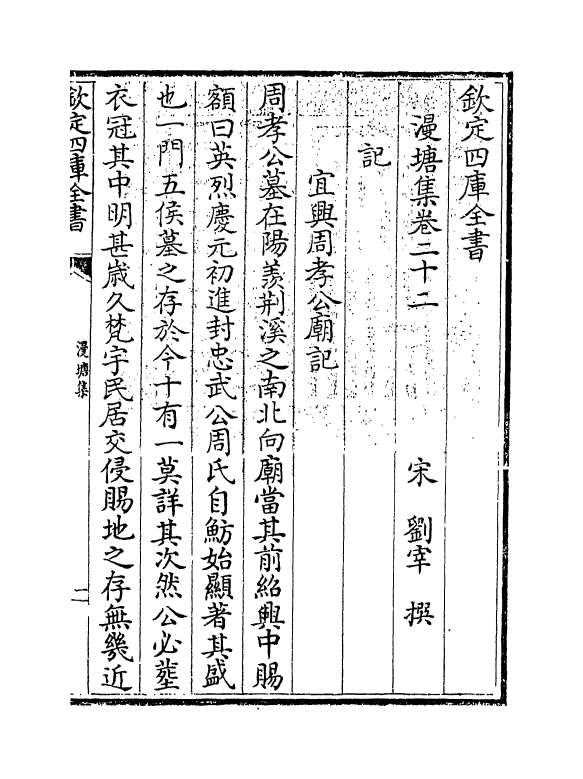 欽定四庫全書
漫塘集卷二十二　　宋　劉宰　撰
記
宜興周孝公廟記
周孝公墓在陽羨荆溪之南北向廟當其前紹興中賜
額曰英烈慶元初進封忠武公周氏自魴始顯著其盛
也一門五侯墓之存於今十有一莫詳其次然公必塟
衣冠其中明甚歳久梵宇民居交侵賜地之存無幾近
欽定四庫全書
漫塘集
二